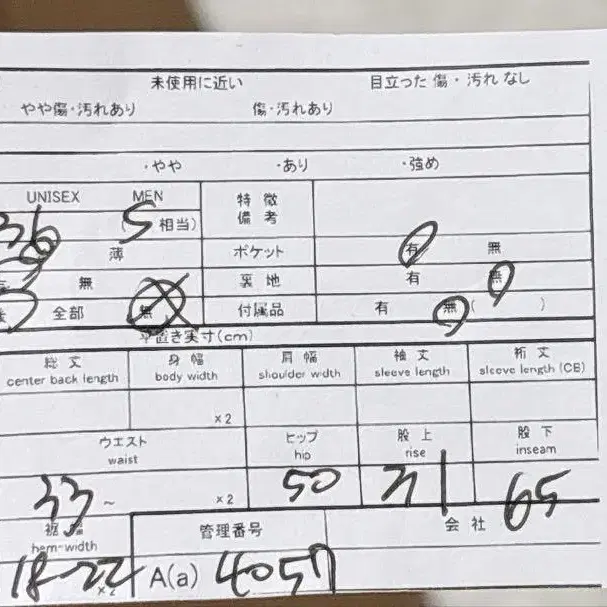 未使用に近い 目立った 傷・汚れ なし
やや傷・汚れあり 傷・汚れあり
・やや ・あり ・強め
UNISEX MEN 特徴
備考
36 (S 相当)
薄 ポケット 有 無
無 裏地 有 無
全部 無 付属品 有 無 ( )
平置き実寸(cm)
総丈 身幅 肩幅 袖丈 裄丈
center back length body width shoulder width sleeve length sleeve length (CB)
×2
ウエスト ヒップ 股上 股下
waist hip rise inseam
33 ~ ×2 50 31 65
裾幅 管理番号 会社
hem-width
18-22 ×2 A(a) 4057